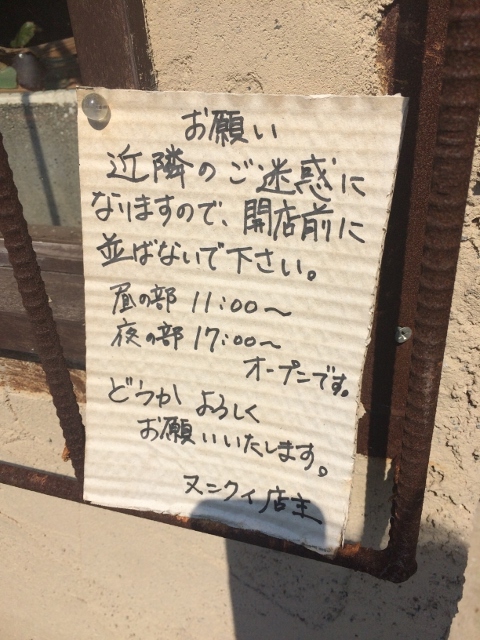 お願い
近隣のご迷惑に
なりますので、開店前に
並ばないで下さい。
昼の部 11:00～
夜の部 17:00～
オープンです。
どうか よろしく
お願いいたします。
ヌニクィ店主